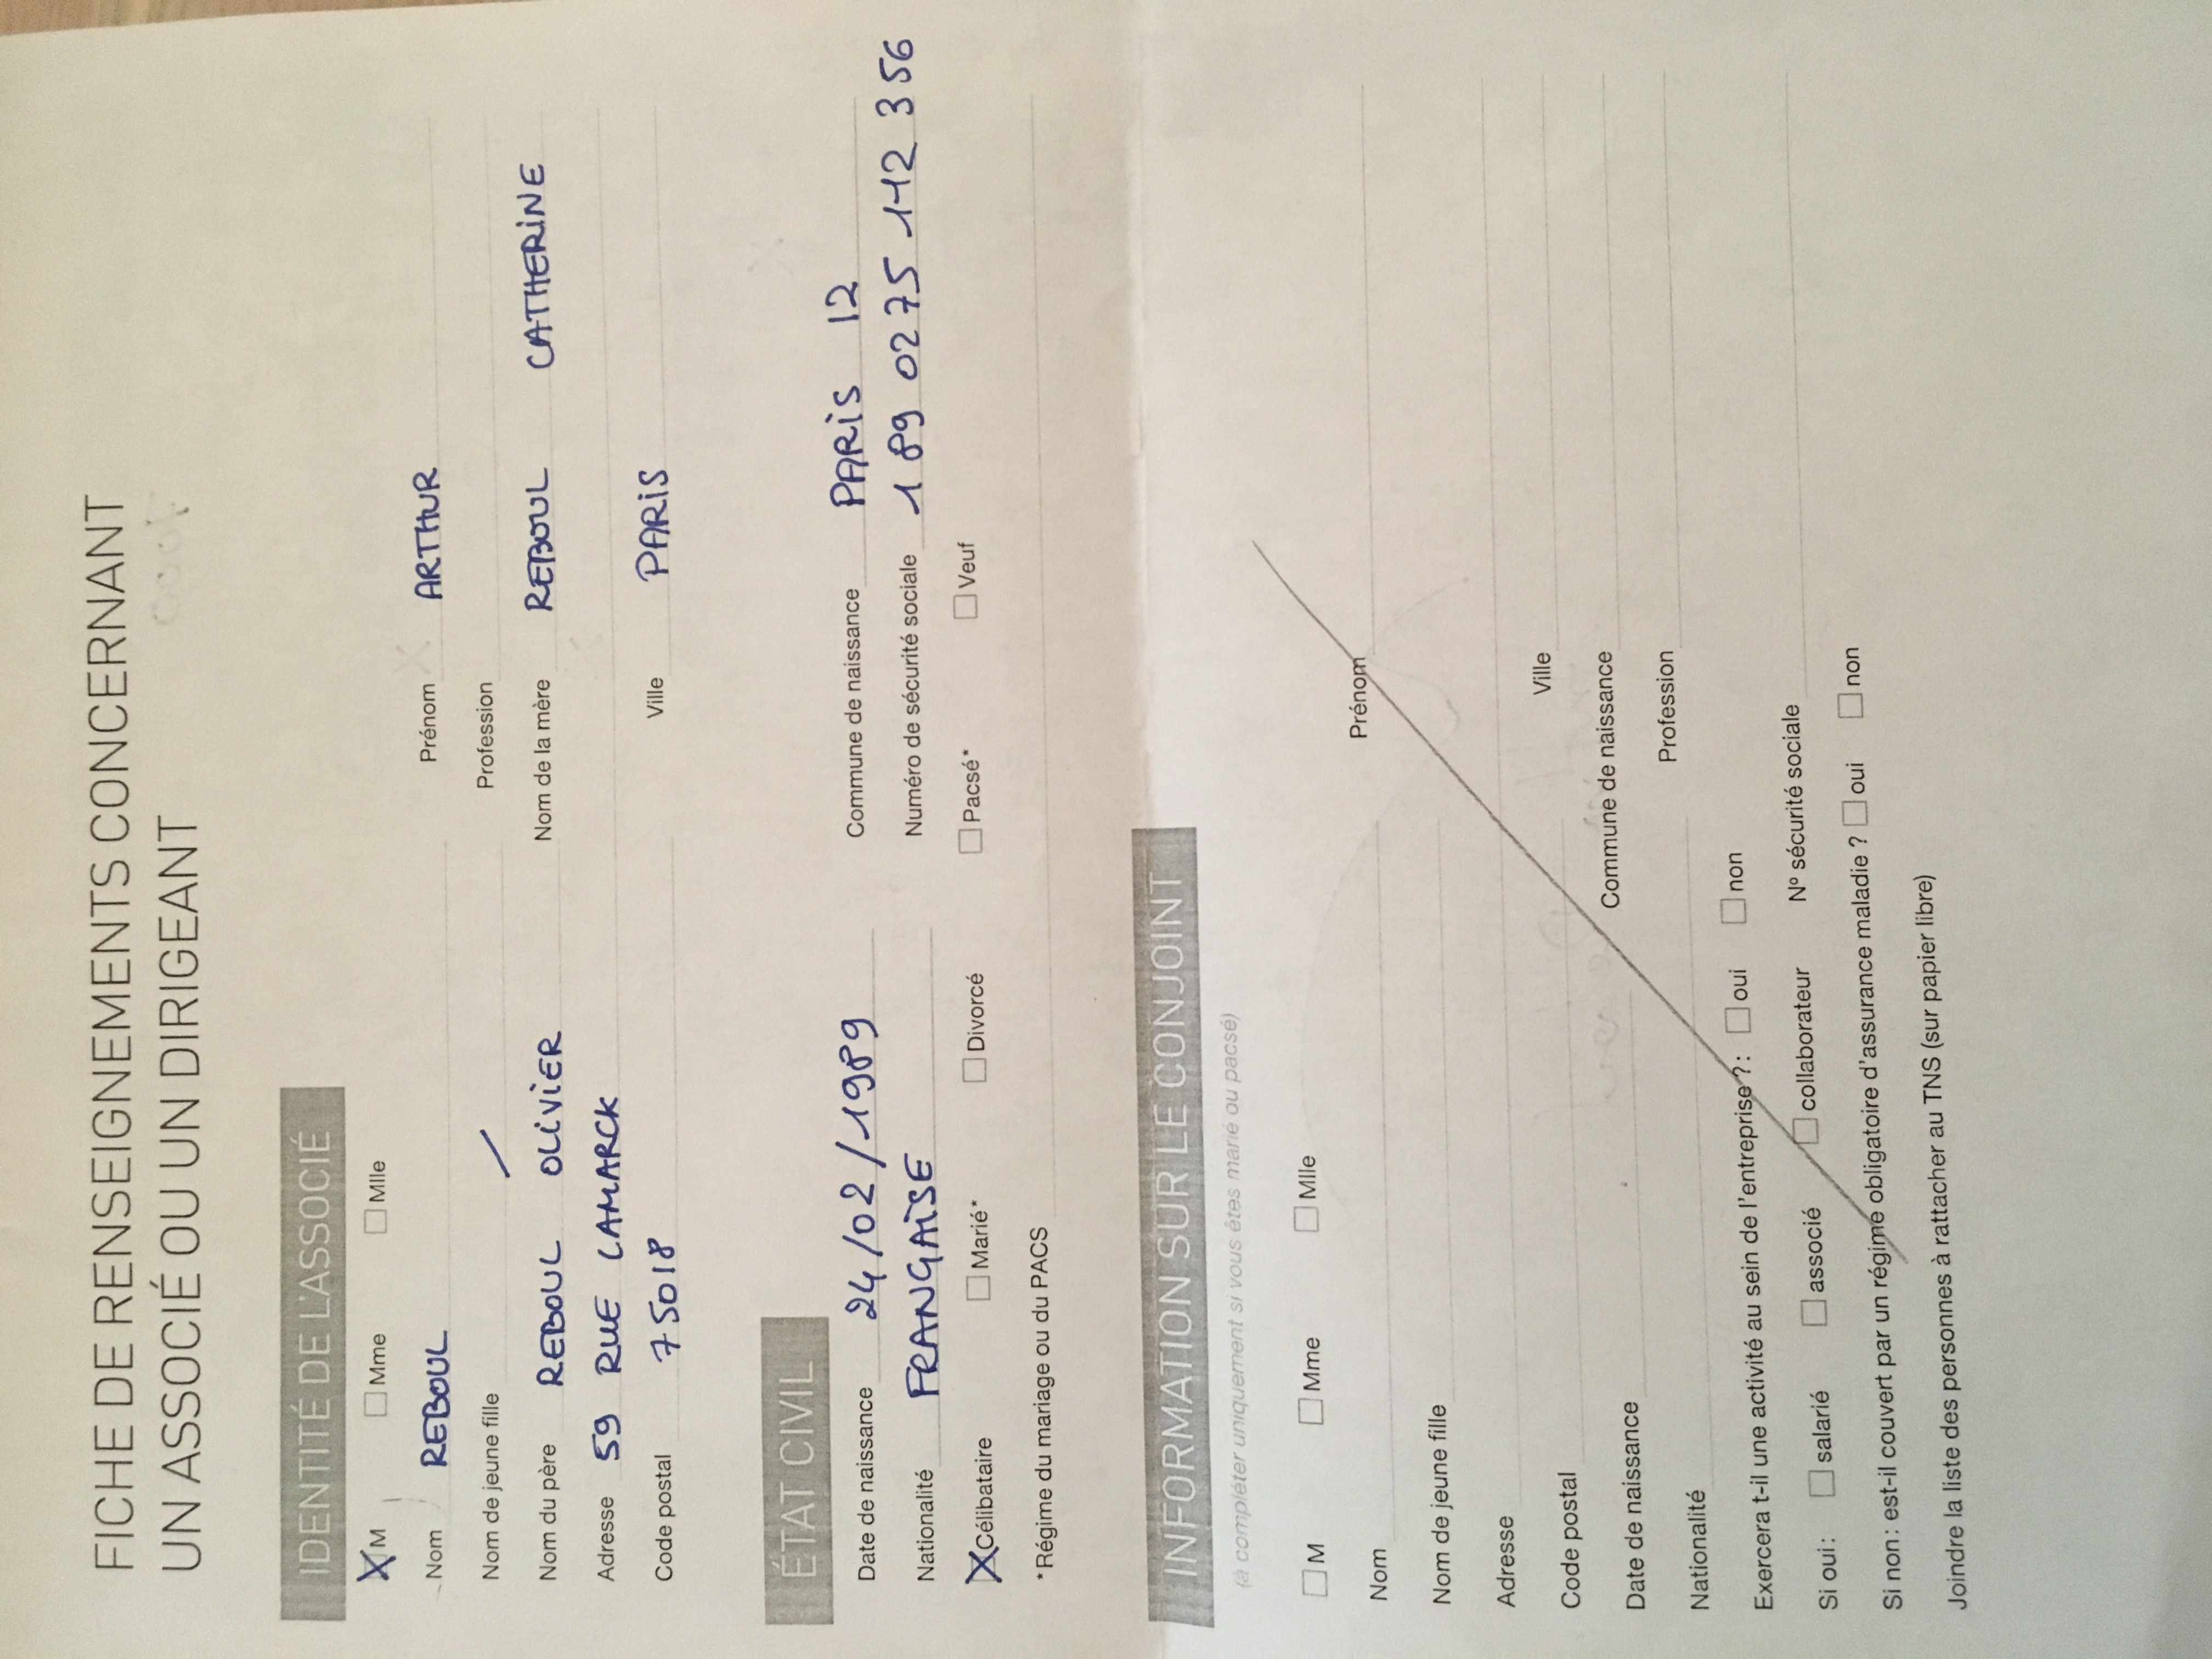 FICHE DE RENSEIGNEMENTS CONCERNANT
UN ASSOCIÉ OU UN DIRIGEANT
IDENTITÉ DE L'ASSOCIÉ
M Mme Mlle
Nom REBOUL Prénom ARTHUR
Nom de jeune fille / Profession
Nom du père REBOUL OLIVIER Nom de la mère REBOUL CATHERINE
Adresse 59 RUE LAMARCK
Code postal 75018 Ville PARIS
ÉTAT CIVIL
Date de naissance 24/02/1989 Commune de naissance PARIS 12
Nationalité FRANÇAISE Numéro de sécurité sociale 1 89 0275 112 356
Célibataire Marié* Divorcé Pacsé* Veuf
*Régime du mariage ou du PACS
INFORMATION SUR LE CONJOINT
(à compléter uniquement si vous êtes marié ou pacsé)
M Mme Mlle
Nom Prénom
Nom de jeune fille
Adresse
Code postal Ville
Date de naissance Commune de naissance
Nationalité Profession
Exercera t-il une activité au sein de l'entreprise ?: oui non
Si oui: salarié associé collaborateur Nº sécurité sociale
Si non: est-il couvert par un régime obligatoire d'assurance maladie ? oui non
Joindre la liste des personnes à rattacher au TNS (sur papier libre)